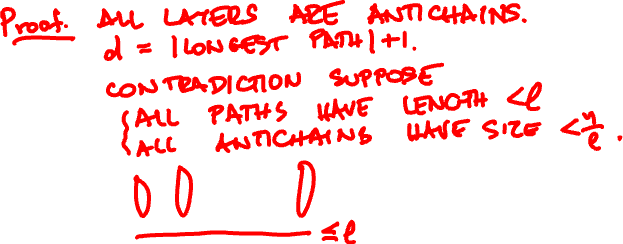 Proof. ALL LAYERS ARE ANTICHAINS.
d = |LONGEST PATH|+1.
CONTRADICTION SUPPOSE
{ALL PATHS HAVE LENGTH <l
ALL ANTICHAINS HAVE SIZE < n/l.
≤l